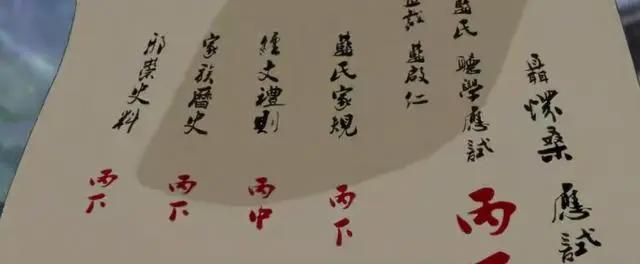 聶懷桑 應試
藍氏 聽學應試 丙下
藍啟仁
藍氏家規 丙下
經文禮則 丙中
家族曆史 丙下
邪祟史料 丙下